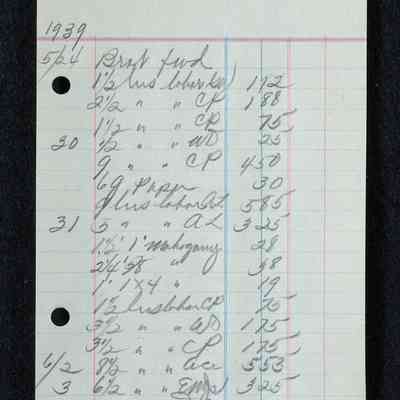 1939
5/24 Brot fwd
1½ hrs labor 112
2½ " " CP 188
1½ " " CP 75
30 ½ " " WD 25
9 " " CP 450
69 Paper 30
hrs labor AL 585
31 5 " " AL 325
1½' 1" mahogany 28
2¼ 3/8 " 38
1' 1x4 " 19
1½ hrs labor CP 75
3½ " " WD 175
3½ " " CP 175
6/2 8½ " " ace 553
3 6½ " " 325